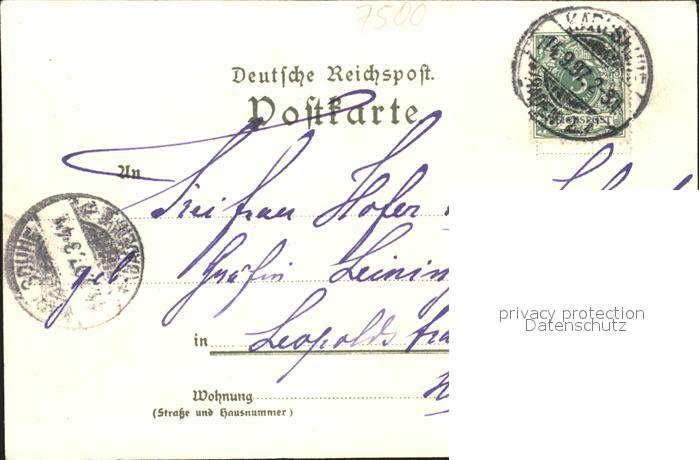 7500
Deutsche Reichspost.
Postkarte
14.9.97. 2-3N
5
REICHSPOST
An
Freifrau Hofer
geb Gräfin Leinin
in Leopoldstra
Wohnung
(Straße und Hausnummer)
privacy protection
Datenschutz